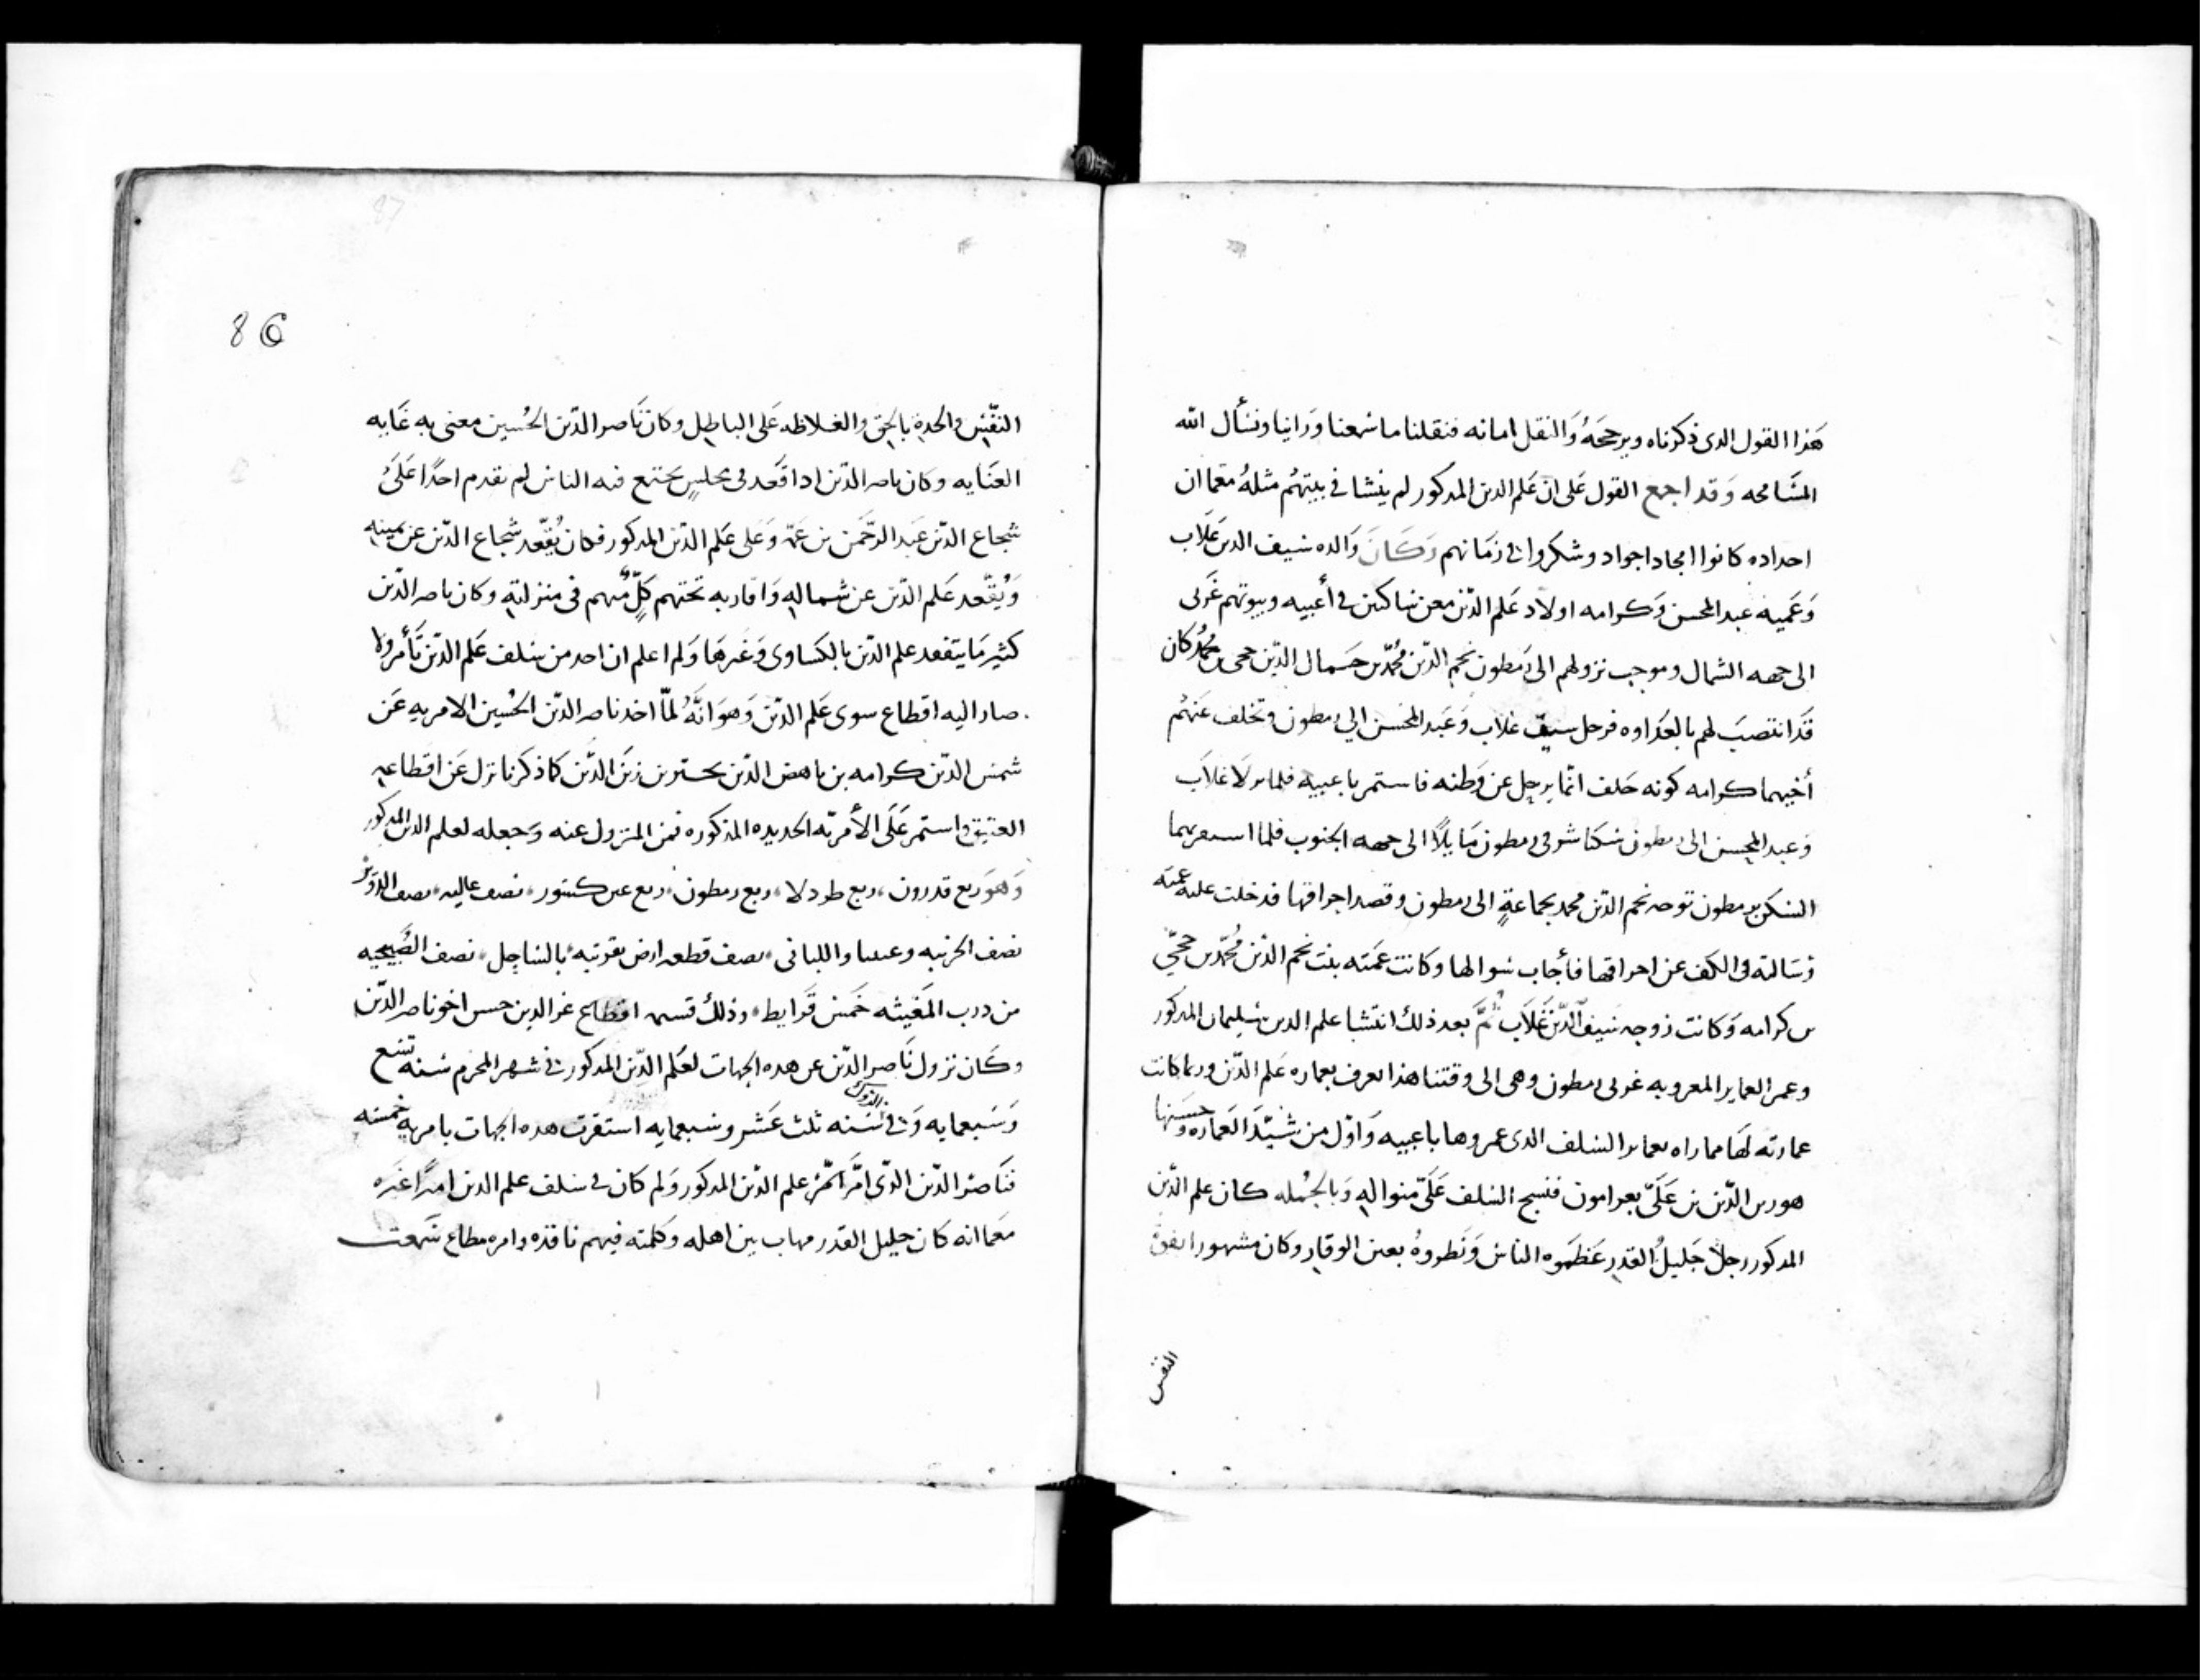 هَذا القول الدى ذكرناه ويرجحَهُ وَالنقل امانه فنقلنا ما سمعنا وَراينا ونسأل الله
المسَامحه وَقد اجمع القول عَلى ان عَلم الدين المدكور لم ينشا في بيتهُم مثلهُ معَما ان
اجداده كانوا امجاد اجواد وشكروا في زمَانهم وَكَانَ وَالده سَيف الدين غلاب
وَعَميه عبد المحسن وَكرامه اولاد عَلم الدّين معن ساكنين في أعبيه وبيوتهم غَربى
الى جهه الشمال وموجب نزولهم الى رَمطون نجم الدّين مُحمّد بن جَمال الدّين حجى بن مُحمُد كان
قَد انتصبَ لهم بالعَداوه فرحل سيف غلاب وَعَبد المحسن الي رمطون وتخلف عَنهُم
أخيهما كرامه كونه حَلف انمّا يرحل عن وَطنه فاستمر باعبيه فلما نزلا غلاَب
وَعبد المحسن الى رمطون سَكنا شرقى رمطون مَايلاً الى جهه الجنوب فلما استقر بهما
السَكن برمطون توجه نجم الدّين محمد بجماعةٍ الى رمطون وقصد احراقها فدخلت عليه عَمته
وَسَالته في الكف عن احراقها فأجاب سوالها وكانت عَمته بنت نجم الدّين مُحمّد بن حجّي
بن كرامه وَكانت زوجه سَيف الدّين غَلاَب ثمَّ بعد ذلك انتشا علم الدين سُليمان المذكور
وعمر العماير المعروبه غربى رمطون وهى الى وقتنا هذا يعرف بعماره عَلم الدّين وربما كانت
عمارته لهَا مما راه بعماير السَلف الدى عمروها باعبيه وَاوّل من شَيّدَ العَماره وحسَنها
هو زين الدّين بن عَلَىّ بعرامون فنسج السَلف عَلَىّ منواله وَبالجُمله كان علم الدّين
المدكور رجلاً جَليلُ القدر عَظمَوه الناس وَنظروهُ بعين الوقار وكان مشهورا بقوة
النفس
86
النفّس والحدة بالحق والغلاظه عَلى الباطل وكان نَاصر الدّين الحُسين معنى به غَايه
العنَايه وكان ناصر الدّين ادا قعَد في مجلسٍ يجتمع فيه الناس لم يقدم احدًا عَلَىّ
شجاع الدّين عَبد الرَّحمَن بن عَمّه وَعَلى عَلم الدّين المذكور فكان يُقعّد شجاع الدّين عن يمينه
وَيُقعّد عَلم الدّين عن شماله وَاقاربه تحتهم كلّ مٌنهم في منزلته وكان ناصر الدّين
كثير مَا يتفقد علم الدّين بالكساوى وَغَيرهَا وَلم اعلم ان احد من سَلف عَلم الدّين تَأمر ولا
صار اليه اقطاع سوى عَلم الدّين وَهوَ انّهُ لمّا اخد ناصر الدّين الحُسين الامريه عَن
شمس الدّين كرامه بن ناهض الدّين بحتر بن زين الدّين كما ذكرنا نزل عَن اقطاعه
العتيق واستمر عَلَى الأمريّه الجديده المذكوره فمن المنزول عنه وجعله لعلم الدين المدكور
وَهوَ ربع قدرون، ربع طردلا، ربع رمطون، ربع عين كسور، نصف عاليه، نصف الدوير
نصف الخريبه وعيناب واللبانى، نصف قطعه ارض بقرتيه بالساحل، نصف الصُبيحيه
من درب المَغيثه خَمس قَرايط، وذلك قسيمه اقطاع عز الدين حسن اخو ناصر الدّين
وكَان نزول نَاصر الدّين عن هده الجهات لعَلم الدّين المذكور في شهر المحرم سَنه تسَع
وَسَبعمايه وَفى سَنه ثلث عَشر وسَبعمايه استقرت هده الجهات بامريه خمسَه
فنَاصر الدّين الدّى امَّر علم الدّين المدكور وَلم كان في سَلف علم الدين اميرًا غَيره
معَما انه كان جليل القدر مهاب بين اهله وَكلمته فيهم نافذه وامره مطاع سَمعت